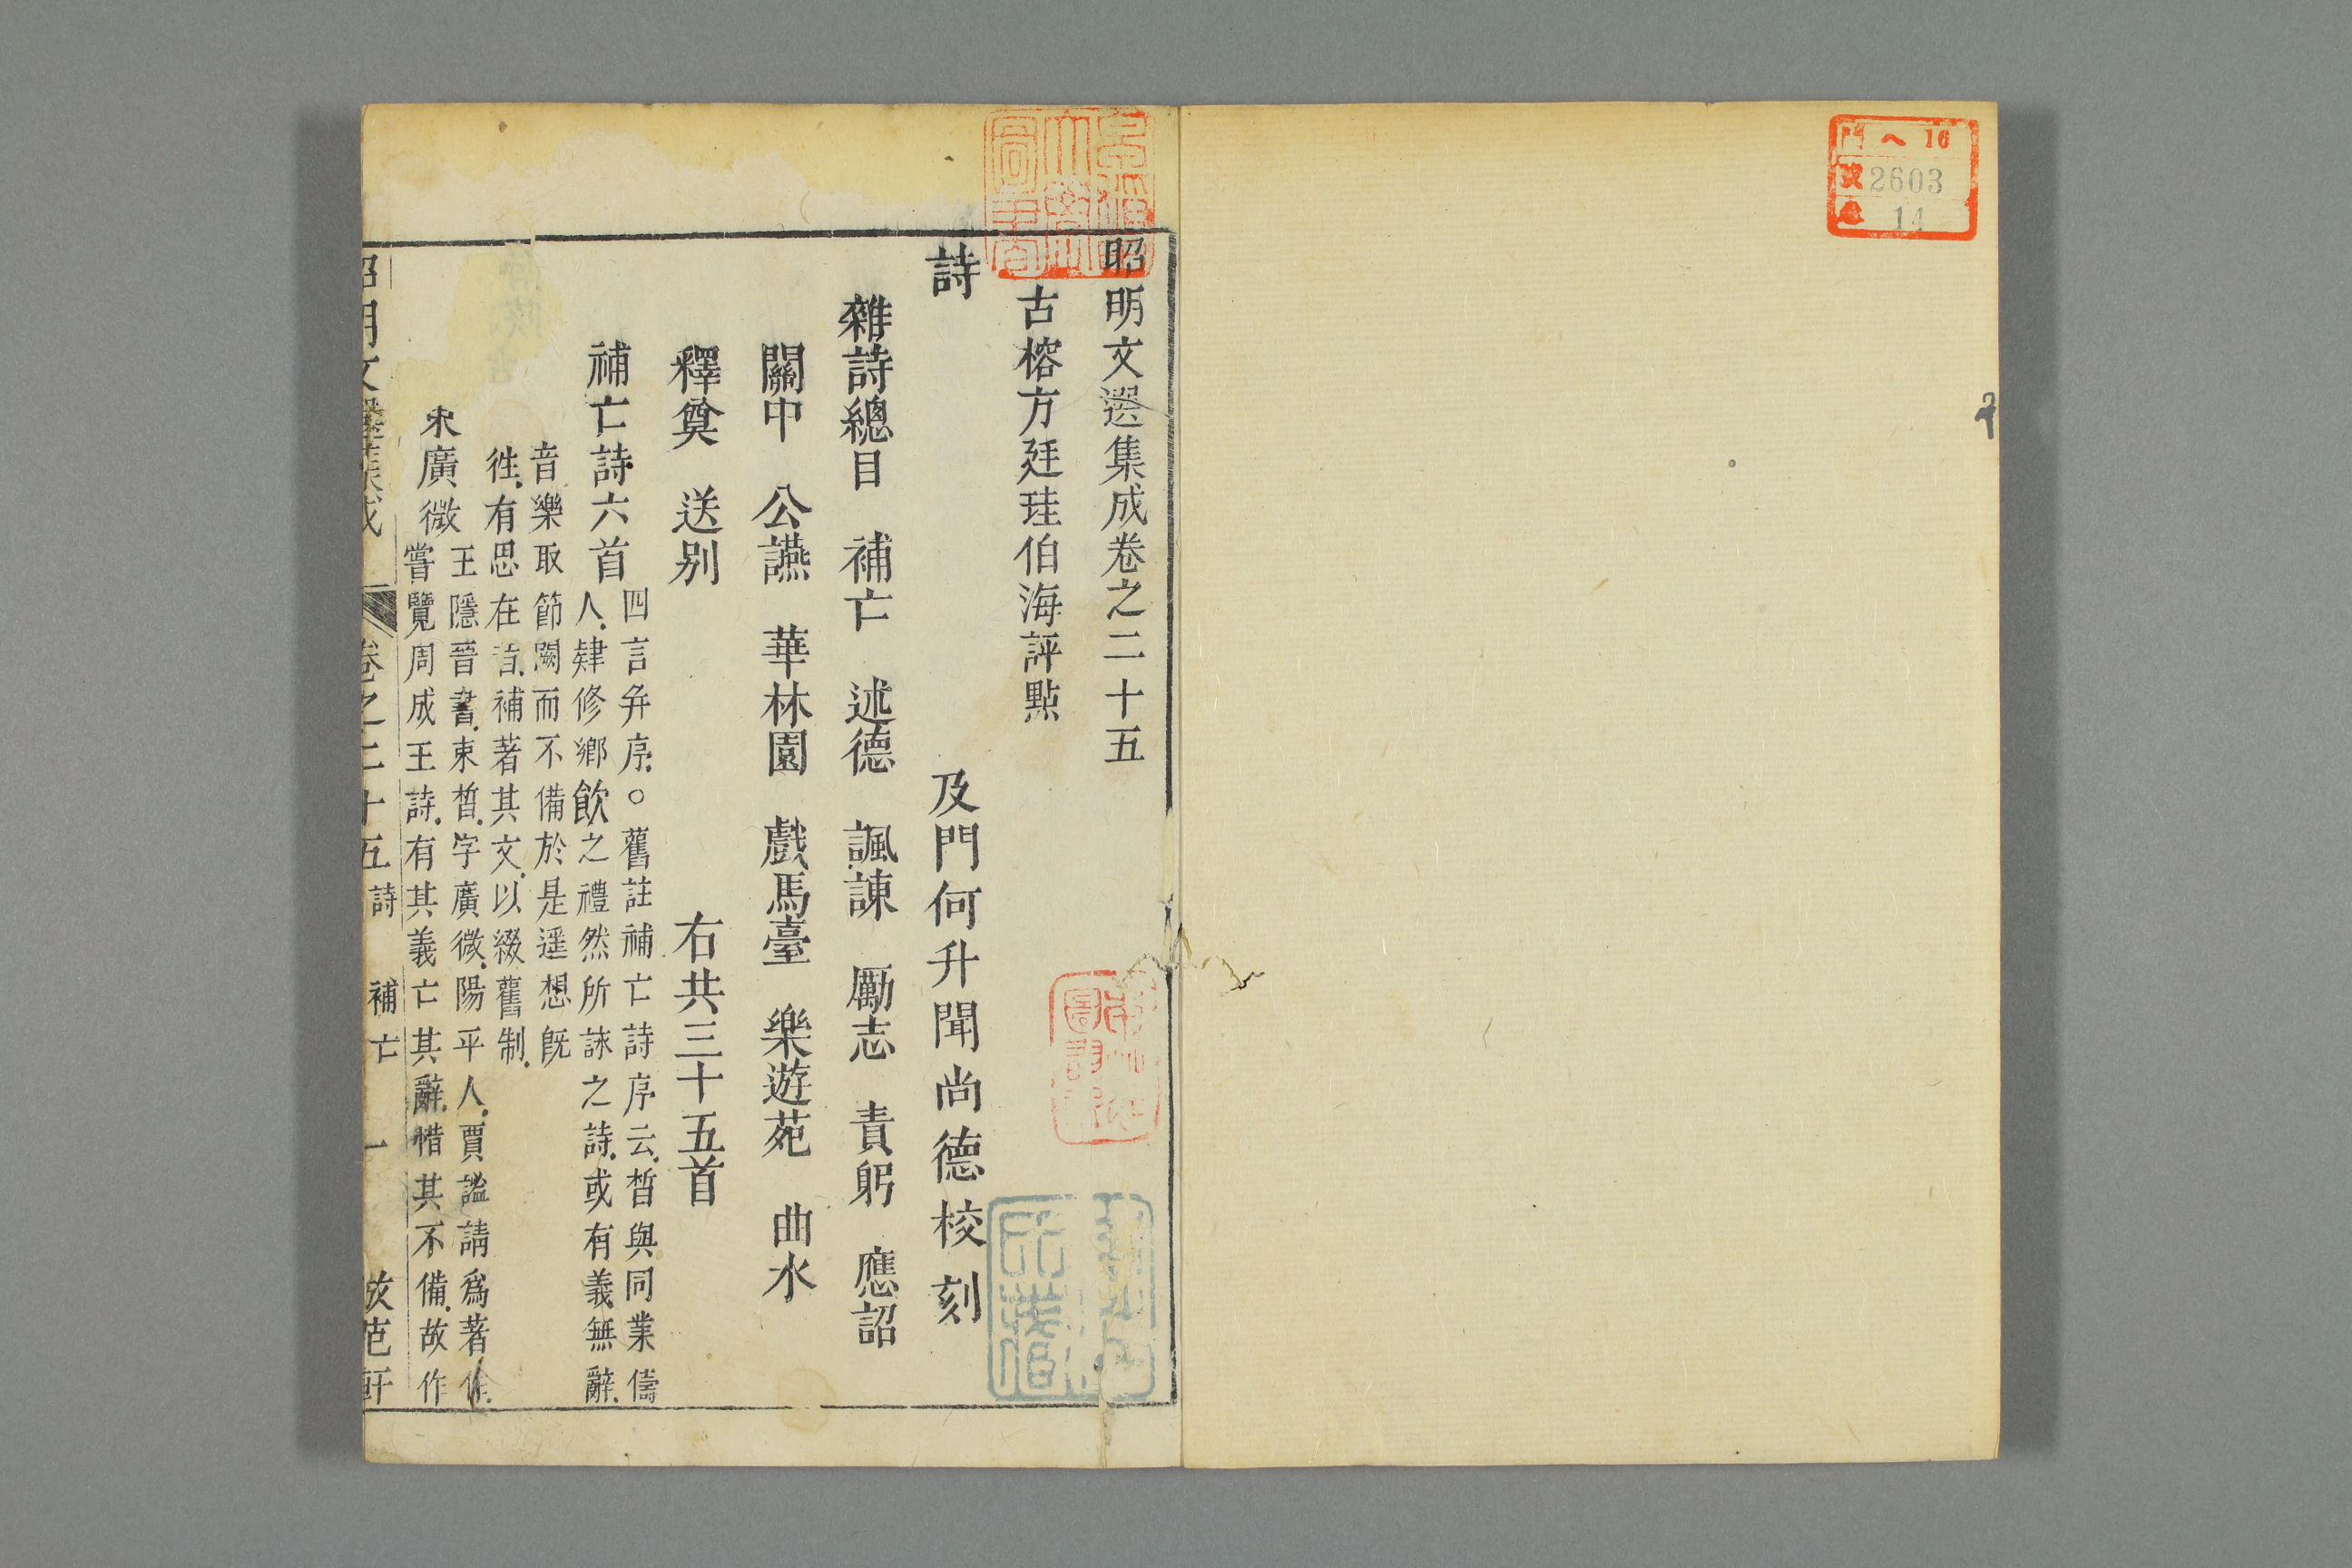 門 へ 16
2603
14
昭明文選集成卷之二十五
古榕方廷珪伯海評點
及門何升聞尚德校刻
詩
雜詩總目 補亡 述德 諷諫 勵志 責躬 應詔
關中 公讌 華林園 戲馬臺 樂遊苑 曲水
釋奠 送别 右共三十五首
補亡詩六首
四言并序。○舊註補亡詩序云皙與同業儔
人肄修鄉飲之禮然所詠之詩或有義無辭
音樂取節闕而不備於是遥想既
徃有思在昔補著其文以綴舊制
束廣微
王隱晉書束皙字廣微陽平人賈謐請爲著作
嘗覽周成王詩有其義亡其辭惜其不備故作
昭明文選集成 卷之二十五 詩 補亡 一 倣范軒